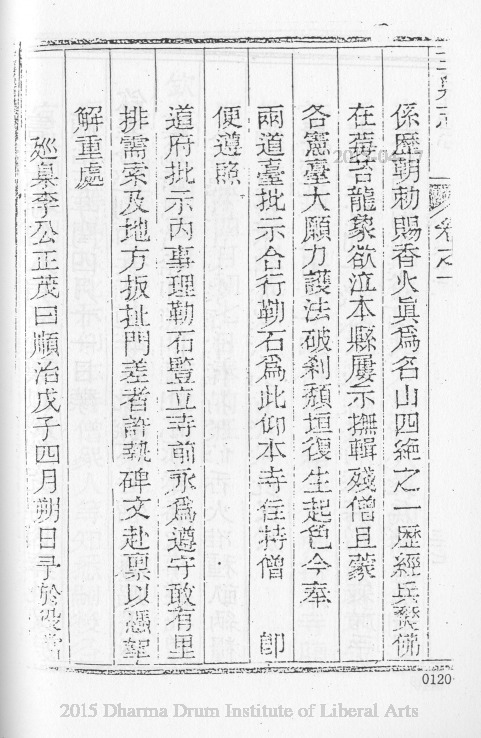 係歷朝勅賜香火眞爲名山四絶之一歷經兵燹佛
在莓苔龍象欲泣本縣屢示撫輯殘僧且蒙
各憲臺大願力護法破剎頹垣復生起色今奉
兩道臺批示合行勒石爲此仰本寺住持僧 卽
便遵照
道府批示內事理勒石豎立寺前永爲遵守敢有里
排需索及地方扳扯門差者許執碑文赴稟以憑
解重處
廵稟李公正茂曰順治戊子四月朔日予於
卷之一
0120
2015 Dharma Drum Institute of Liberal Arts